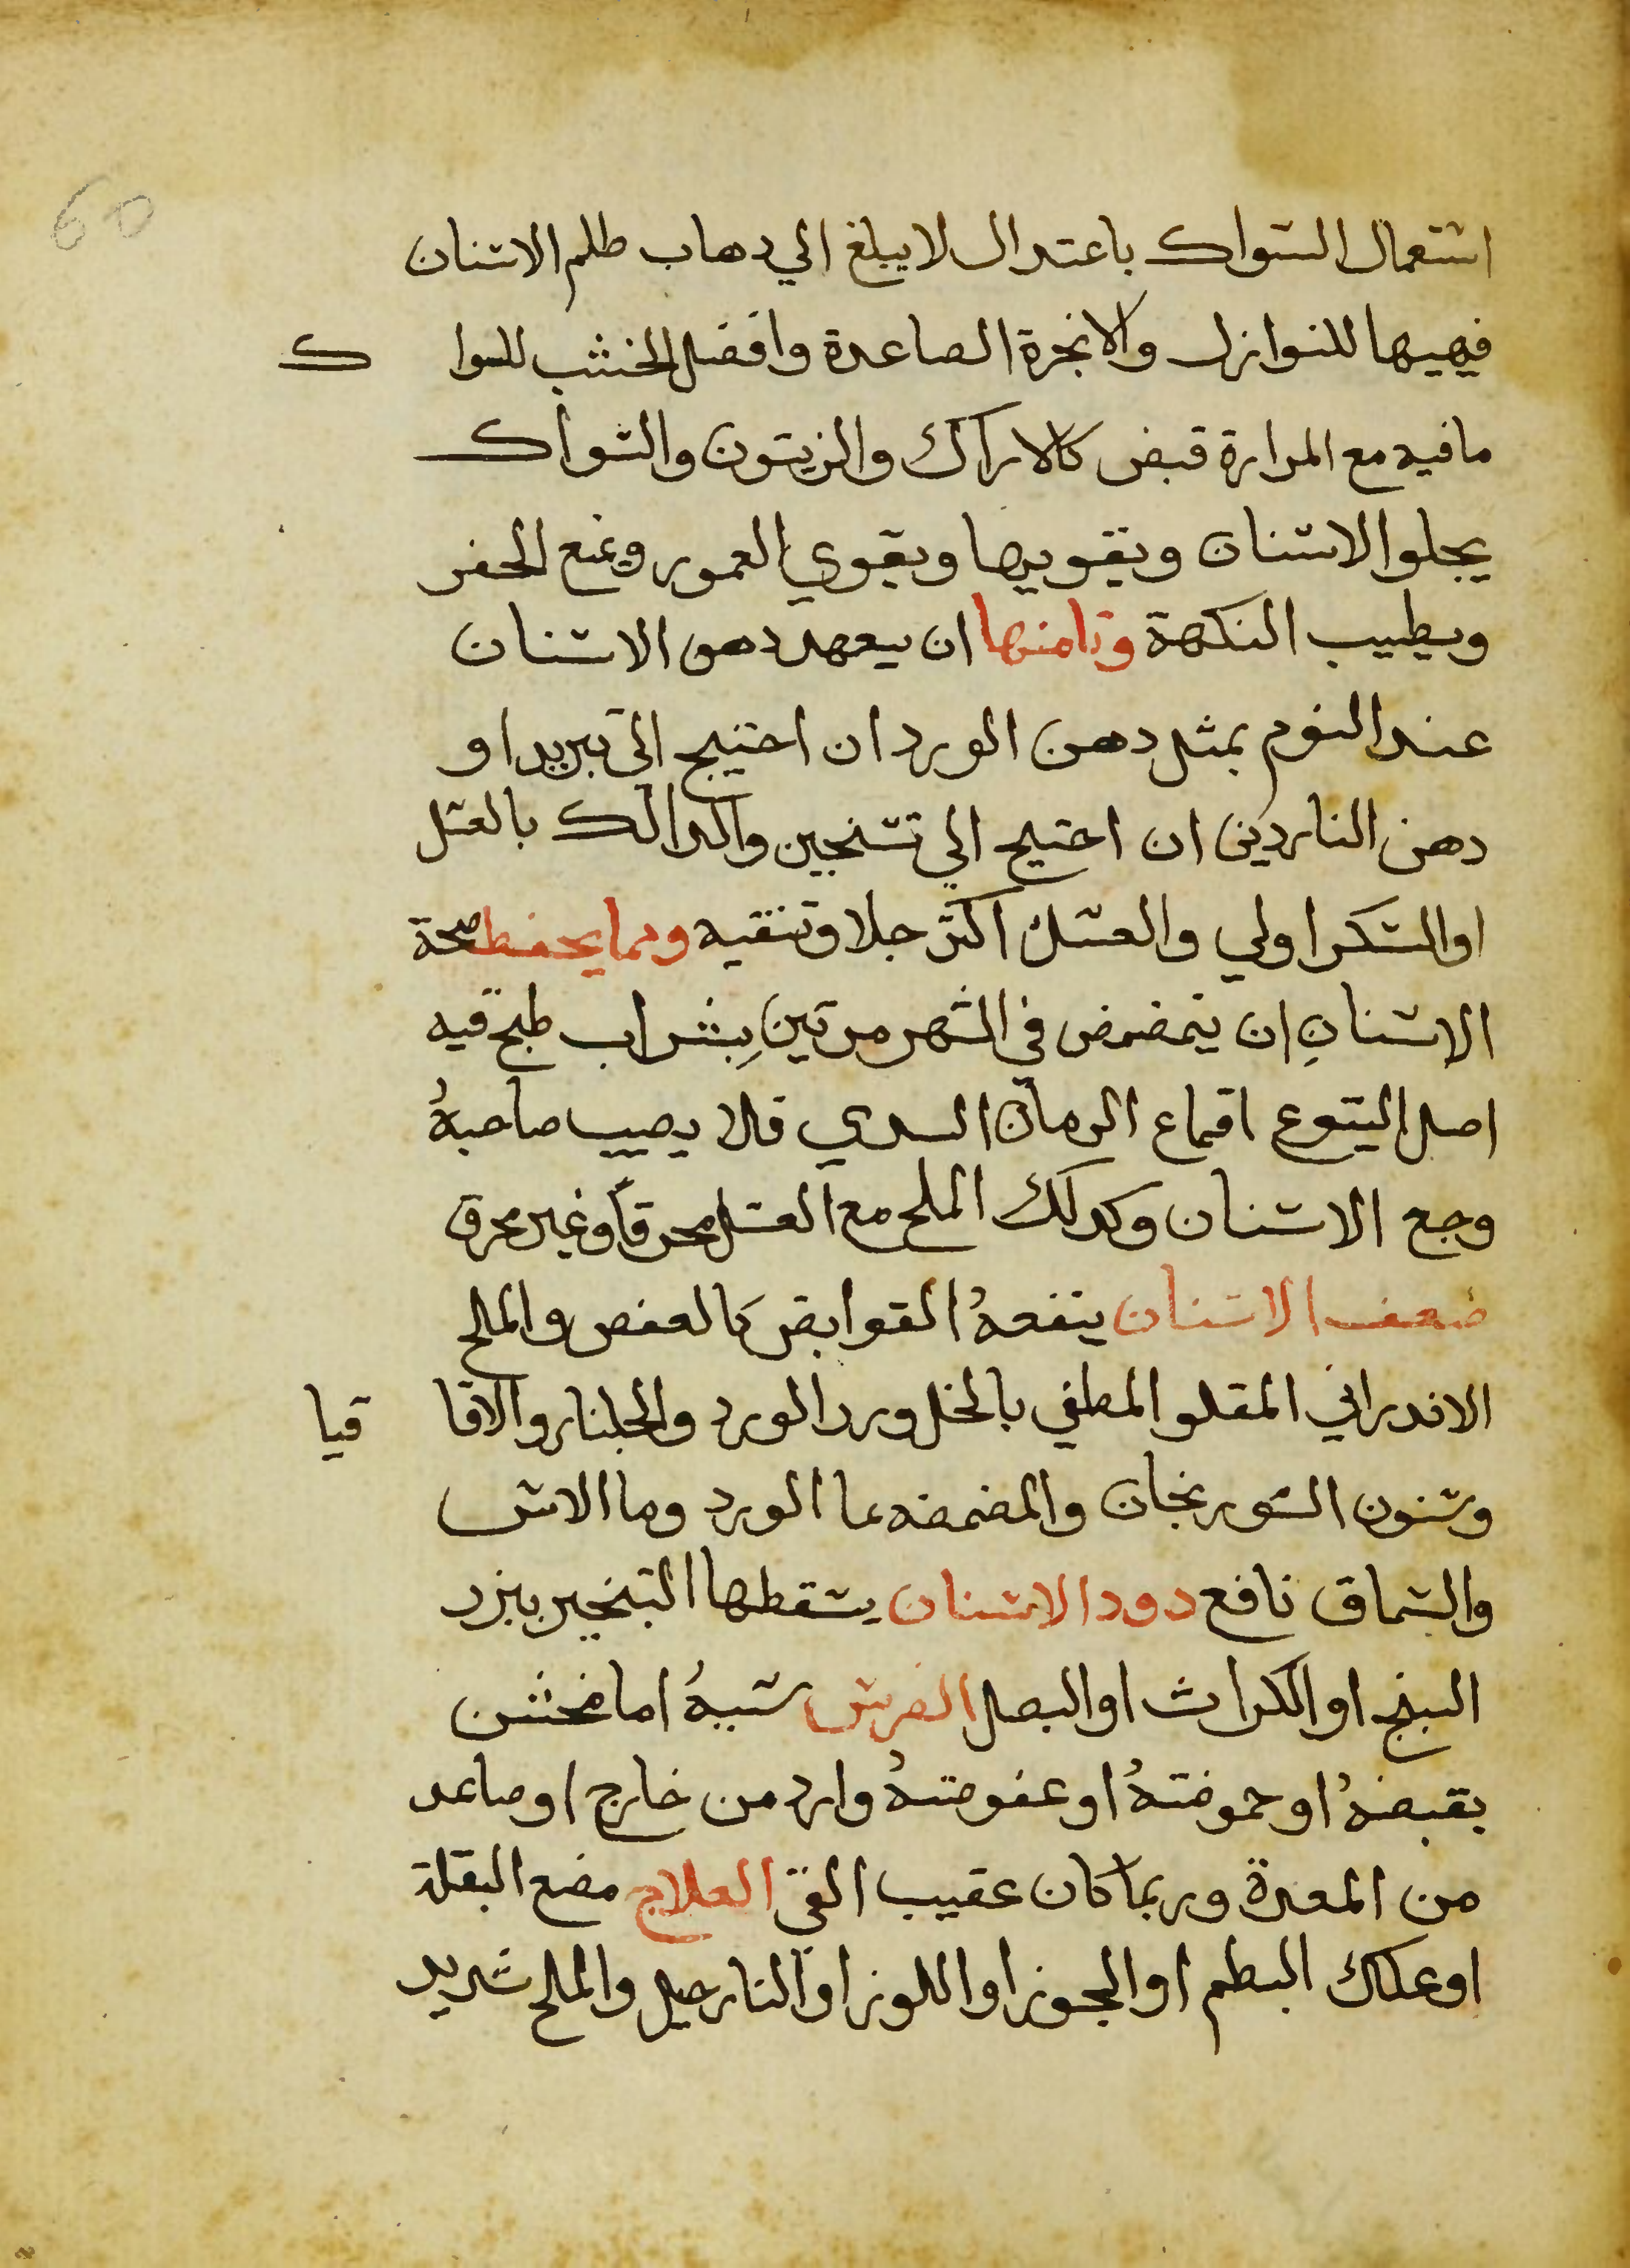 60
استعمال السواك باعتدال لا يبلغ الي دهاب طلم الاسنان
فيهيها للنوازل والابخرة الصاعدة وافضل الخشب للسواك
ما فيه مع المرارة قبض كالاراك والزيتون والسواك
يجلوا الاسنان ويقويها ويقوي العمور ويمنع الحفر
ويطيب النكهة وثامنها ان يتعهد دهن الاسنان
عند النوم بمثل دهن الورد ان احتيج الي تبريد او
دهن الناردين ان احتيج الي تسخين والدالك بالعسل
او السكر اولي والعسل اكثر جلا وتنقيه ومما يحفظ صحة
الاسنانِ ان يتمضمض في الشهر مرتين بِشراب طبخ فيه
اصل اليتوع اقماع الرمان السدي فلا يصيب صاحبهُ
وجع الاسنان وكدلك الملح مع العسل محرقاً وغير محرق
ضعف الاسنان ينفعهُ القوابض كالعفص والملح
الاندراني المقلو المطفي بالخل ورد الورد والجلنار والاقاقيا
وسنون السورنجان والمضمضه بما الورد وما الاس
والسماق نافع دود الاسنان يسقطها التبخير ببزر
البنج او الكراث او البصل الضرس سببهُ اما مخشن
بقبضهُ او حموضتهُ او عفوصتهُ وارد من خارج او صاعد
من المعدة وربما كان عقيب القي العلاج مضع البقلة
او علك البطم او الجوز او اللوز او النارجيل والملح شديد